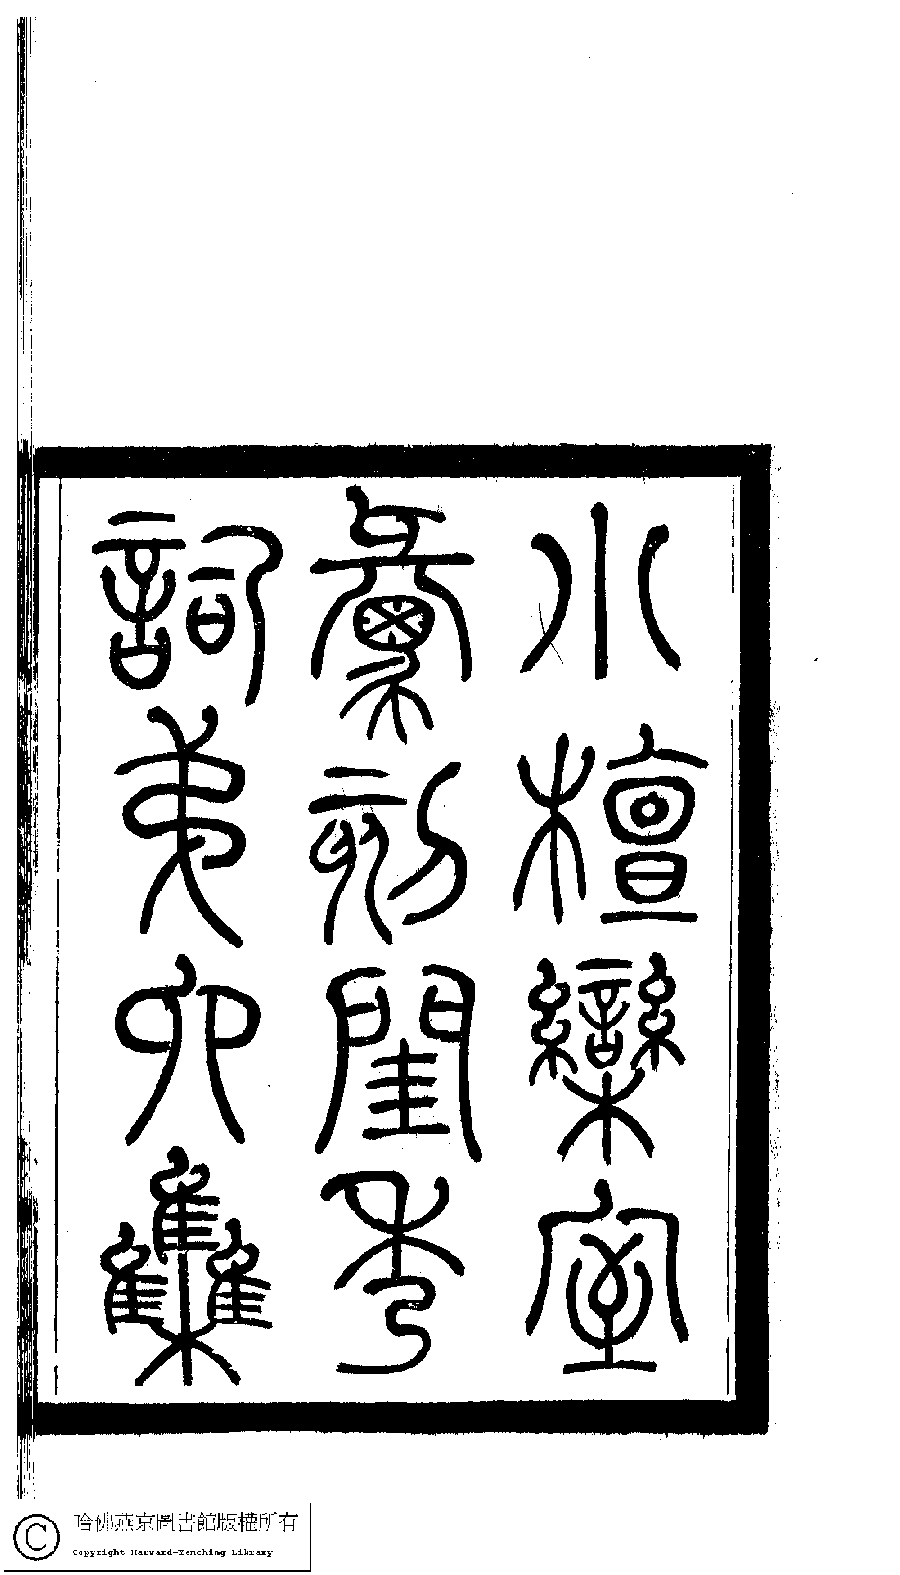 小檀欒室
彙刻閨秀
詞弟六集
哈佛燕京圖書館版權所有
Copyright Harvard-Yenching Library